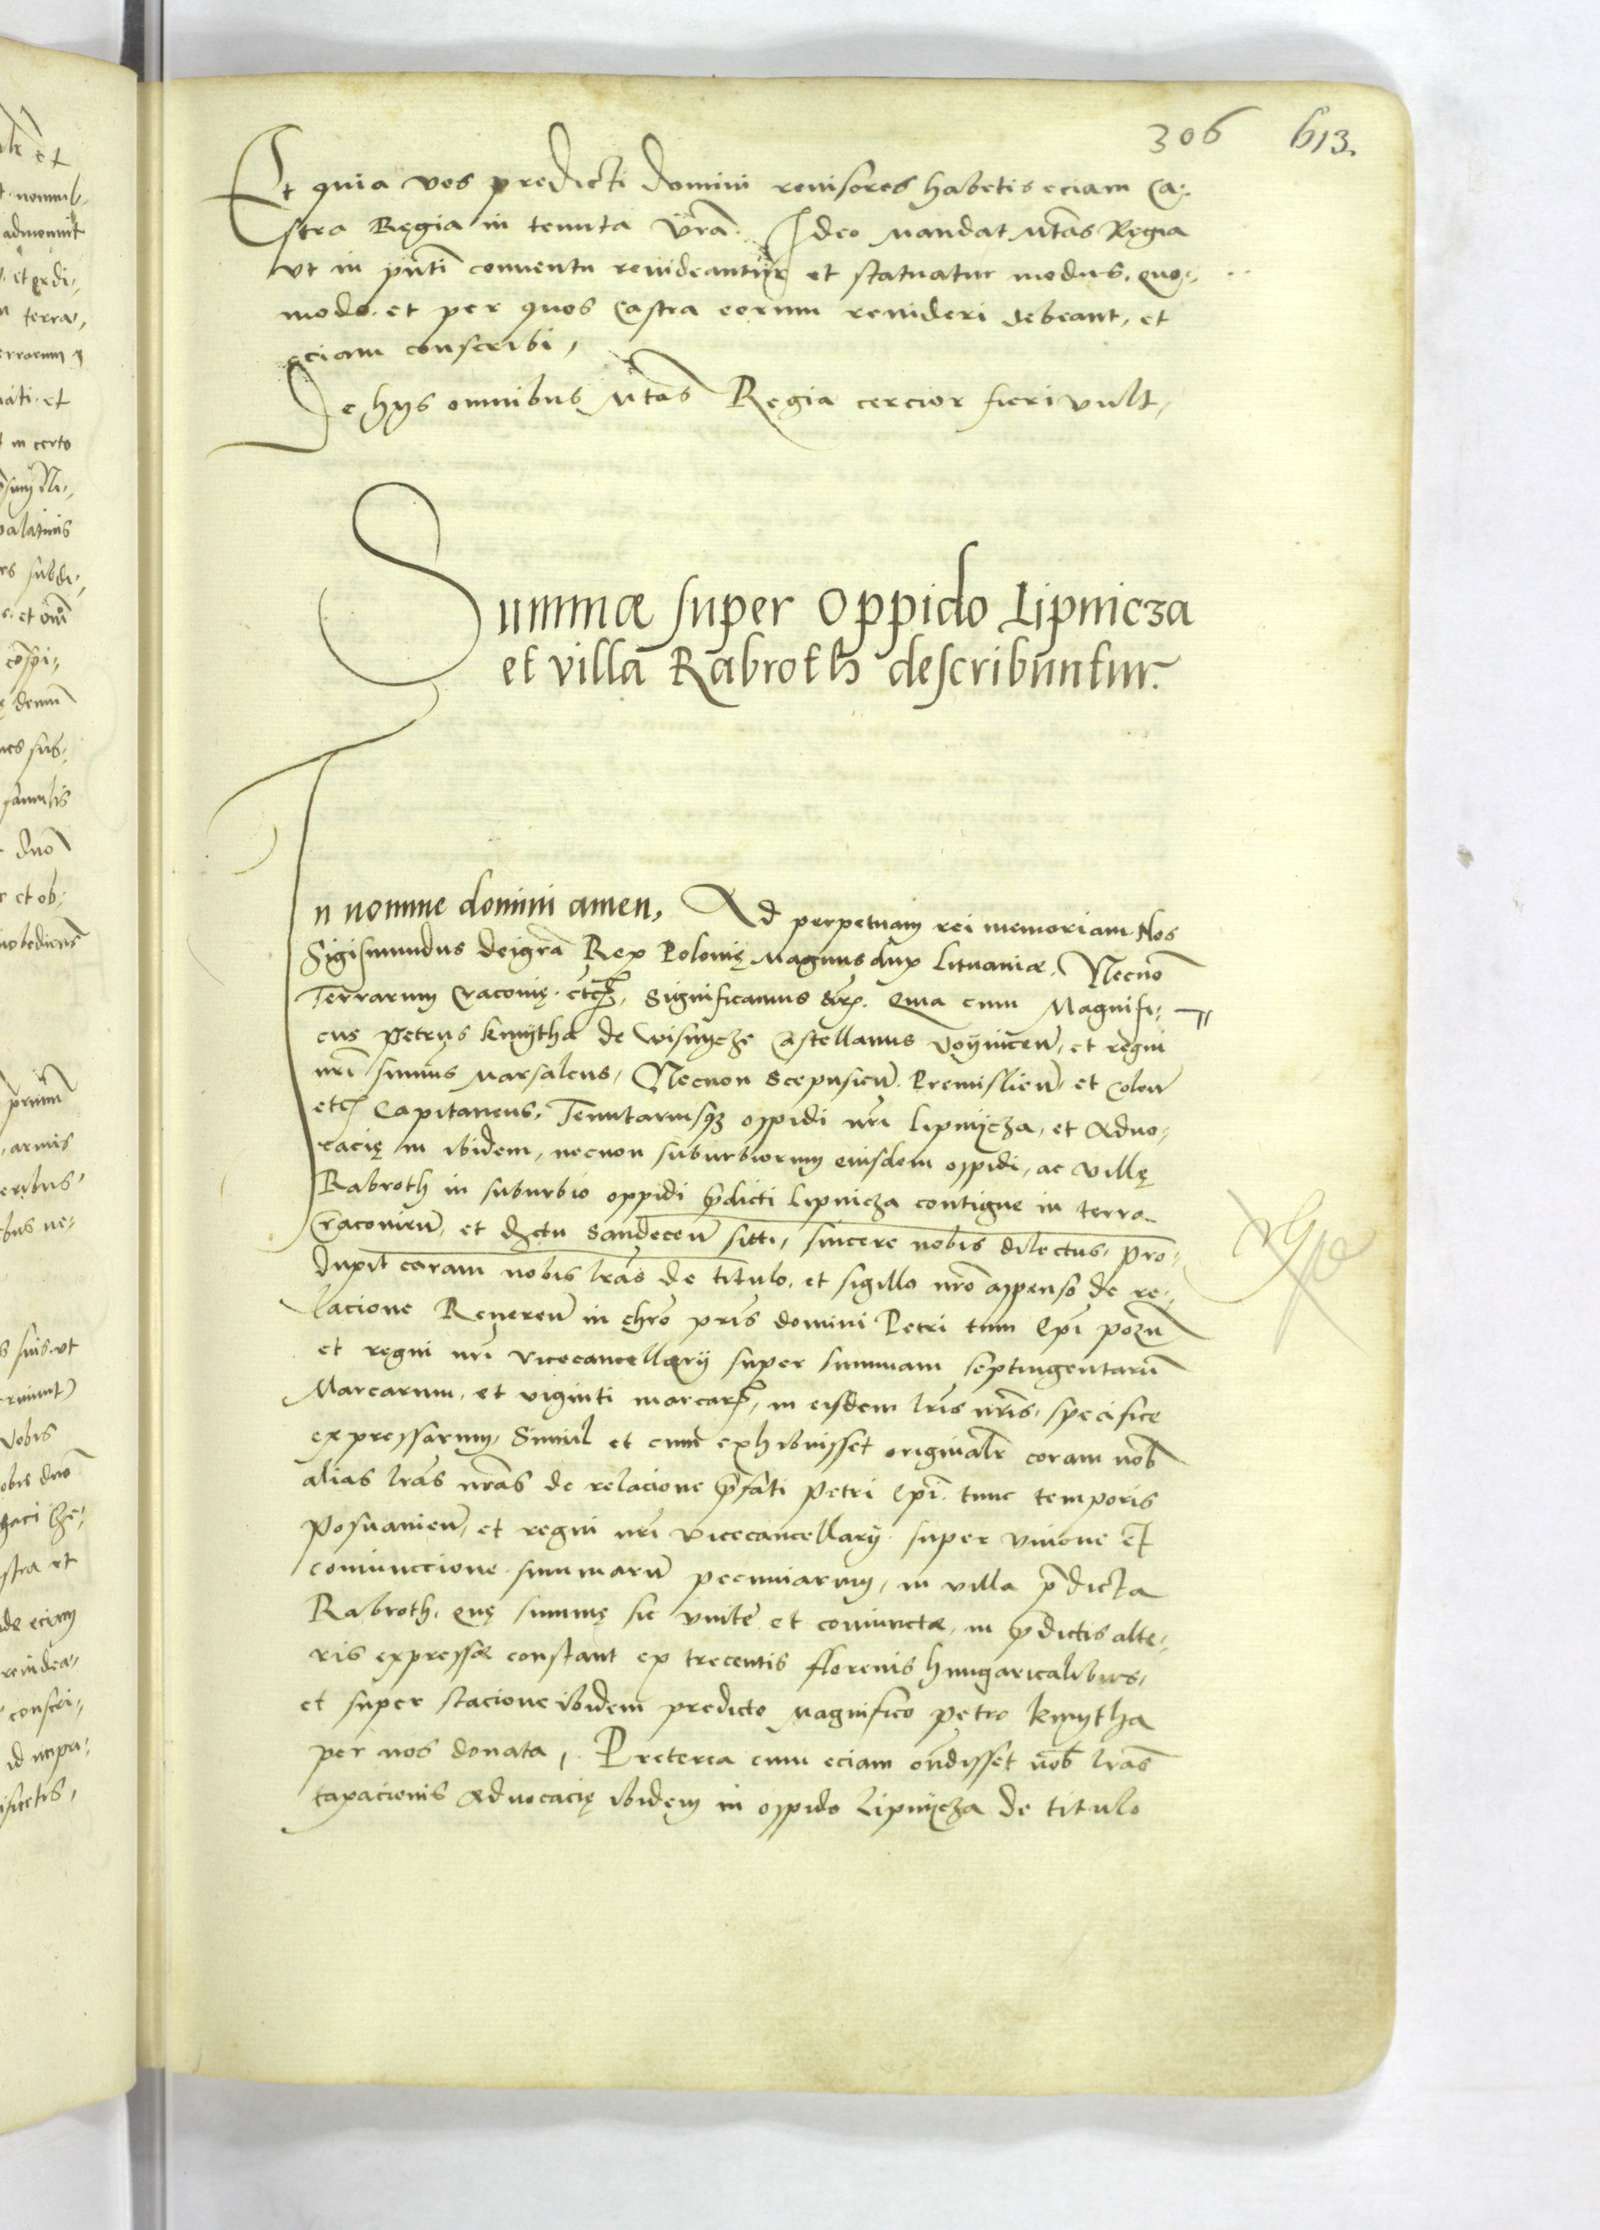 306 613.
Et quia vos predicti domini reuisores habetis eciam Ca-
stra Regia in tenuta vrã. Ideo Mandat Mtas Regia
vt in pñti conuentu reuideantur et statuatur modus, quo-
modo et per quos Castra eorum reuideri debeant, et
eciam conscribi,
De hÿs omnibus Mtas Regia cercior fieri vult,
Summæ super Oppido Lipnicza
et villa Rabroth describuntur.
In nomine domini amen, Ad perpetuam rei memoriam Nos
Sigismundus dei grã Rex Polonię Magnus dux Lituaniæ, Necnõ
Terrarum Cracouię etc. Significamus Quia cum Magnifi-
cus Petrus kmÿtha de wisnÿcze Castellanus voÿniceñ, et regni
nrĩ summus Marsalcus, Necnon Scepusieñ. Premislieñ, et Coloñ
etc Capitaneus, Tenutariusqȝ oppidi nrĩ Lipnÿcza, et Aduo-
cacię in ibidem, necnon suburbiorum eiusdem oppidi, ac villę
Rabroth in suburbio oppidi p̃dicti Lipnicza contigue in terra
Cracouieñ, et dẽctu Sandeceñ sitti, sincere nobis dilectus, pro-
duxit coram nobis lrãs de titulo, et sigillo nrõ appenso de re-
lacione Reuereñ in chrõ pris domini Petri tum Epĩ pozñ
et regni nrĩ vicecancellarÿ super summam septingentarũ
Marcarum, et viginti marcarȝ, in eisdem lrĩs nrĩs, specifice
expressarum, Simul et cum exhibuisset originalr̃ coram nob̃
alias lrãs nrãs de relacione p̃fati Petri Epĩ tunc temporis
Posnanieñ, et regni nrĩ vicecancellarÿ super vnione et
coniunccione summarũ pecuniarum, in villa p̃dicta
Rabroth, quę summę sic vnite et coniunctæ, in p̃dictis alte-
ris expressæ constant ex trecentis florenis hungaricalibus,
et super stacione ibidem predicto Magnifico Petro kmÿtha
per nos donata, Preterea cum eciam oñdisset nob̃ lrãs
taxacionis Aduocacię ibidem in oppido Lipnÿcza de titulo